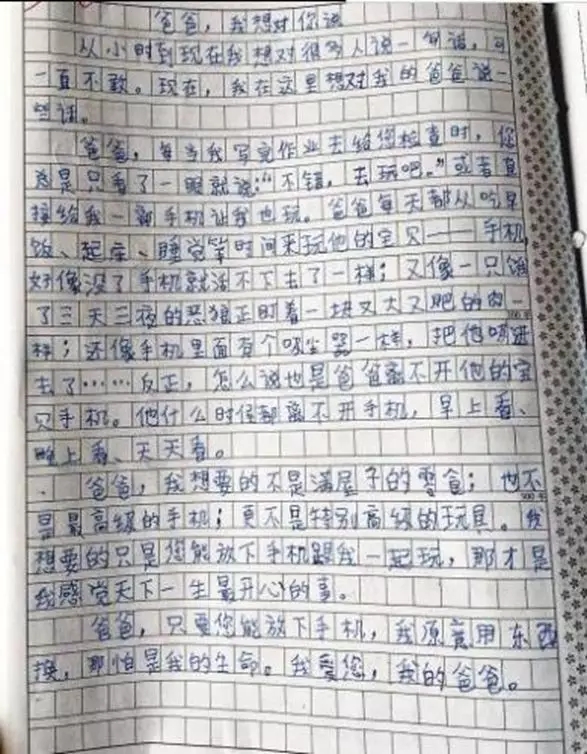 爸爸，我想对你说
从小时到现在我想对很多人说一句话，可
一直不敢。现在，我在这里想对我的爸爸说一
些话。
爸爸，每当我写完作业去给您检查时，您
总是只看了一眼就说：“不错，去玩吧。”或者直
接给我一部手机让我也玩。爸爸每天都从吃早
饭、起床、睡觉等时间来玩他的宝贝——手机，
好像没了手机就活不下去了一样；又像一只饿
了三天三夜的恶狼正盯着一块又大又肥的肉一
样；还像手机里面有个吸尘器一样，把他吸进
去了……反正，怎么说也是爸爸离不开他的宝
贝手机。他什么时候都离不开手机，早上看、
晚上看、天天看。
爸爸，我想要的不是满屋子的零食；也不
是最高级的手机；更不是特别高级的玩具。我
想要的只是您能放下手机跟我一起玩，那才是
我感觉天下一生最开心的事。
爸爸，只要您能放下手机，我原意用东西
换，那怕是我的生命。我爱您，我的爸爸。